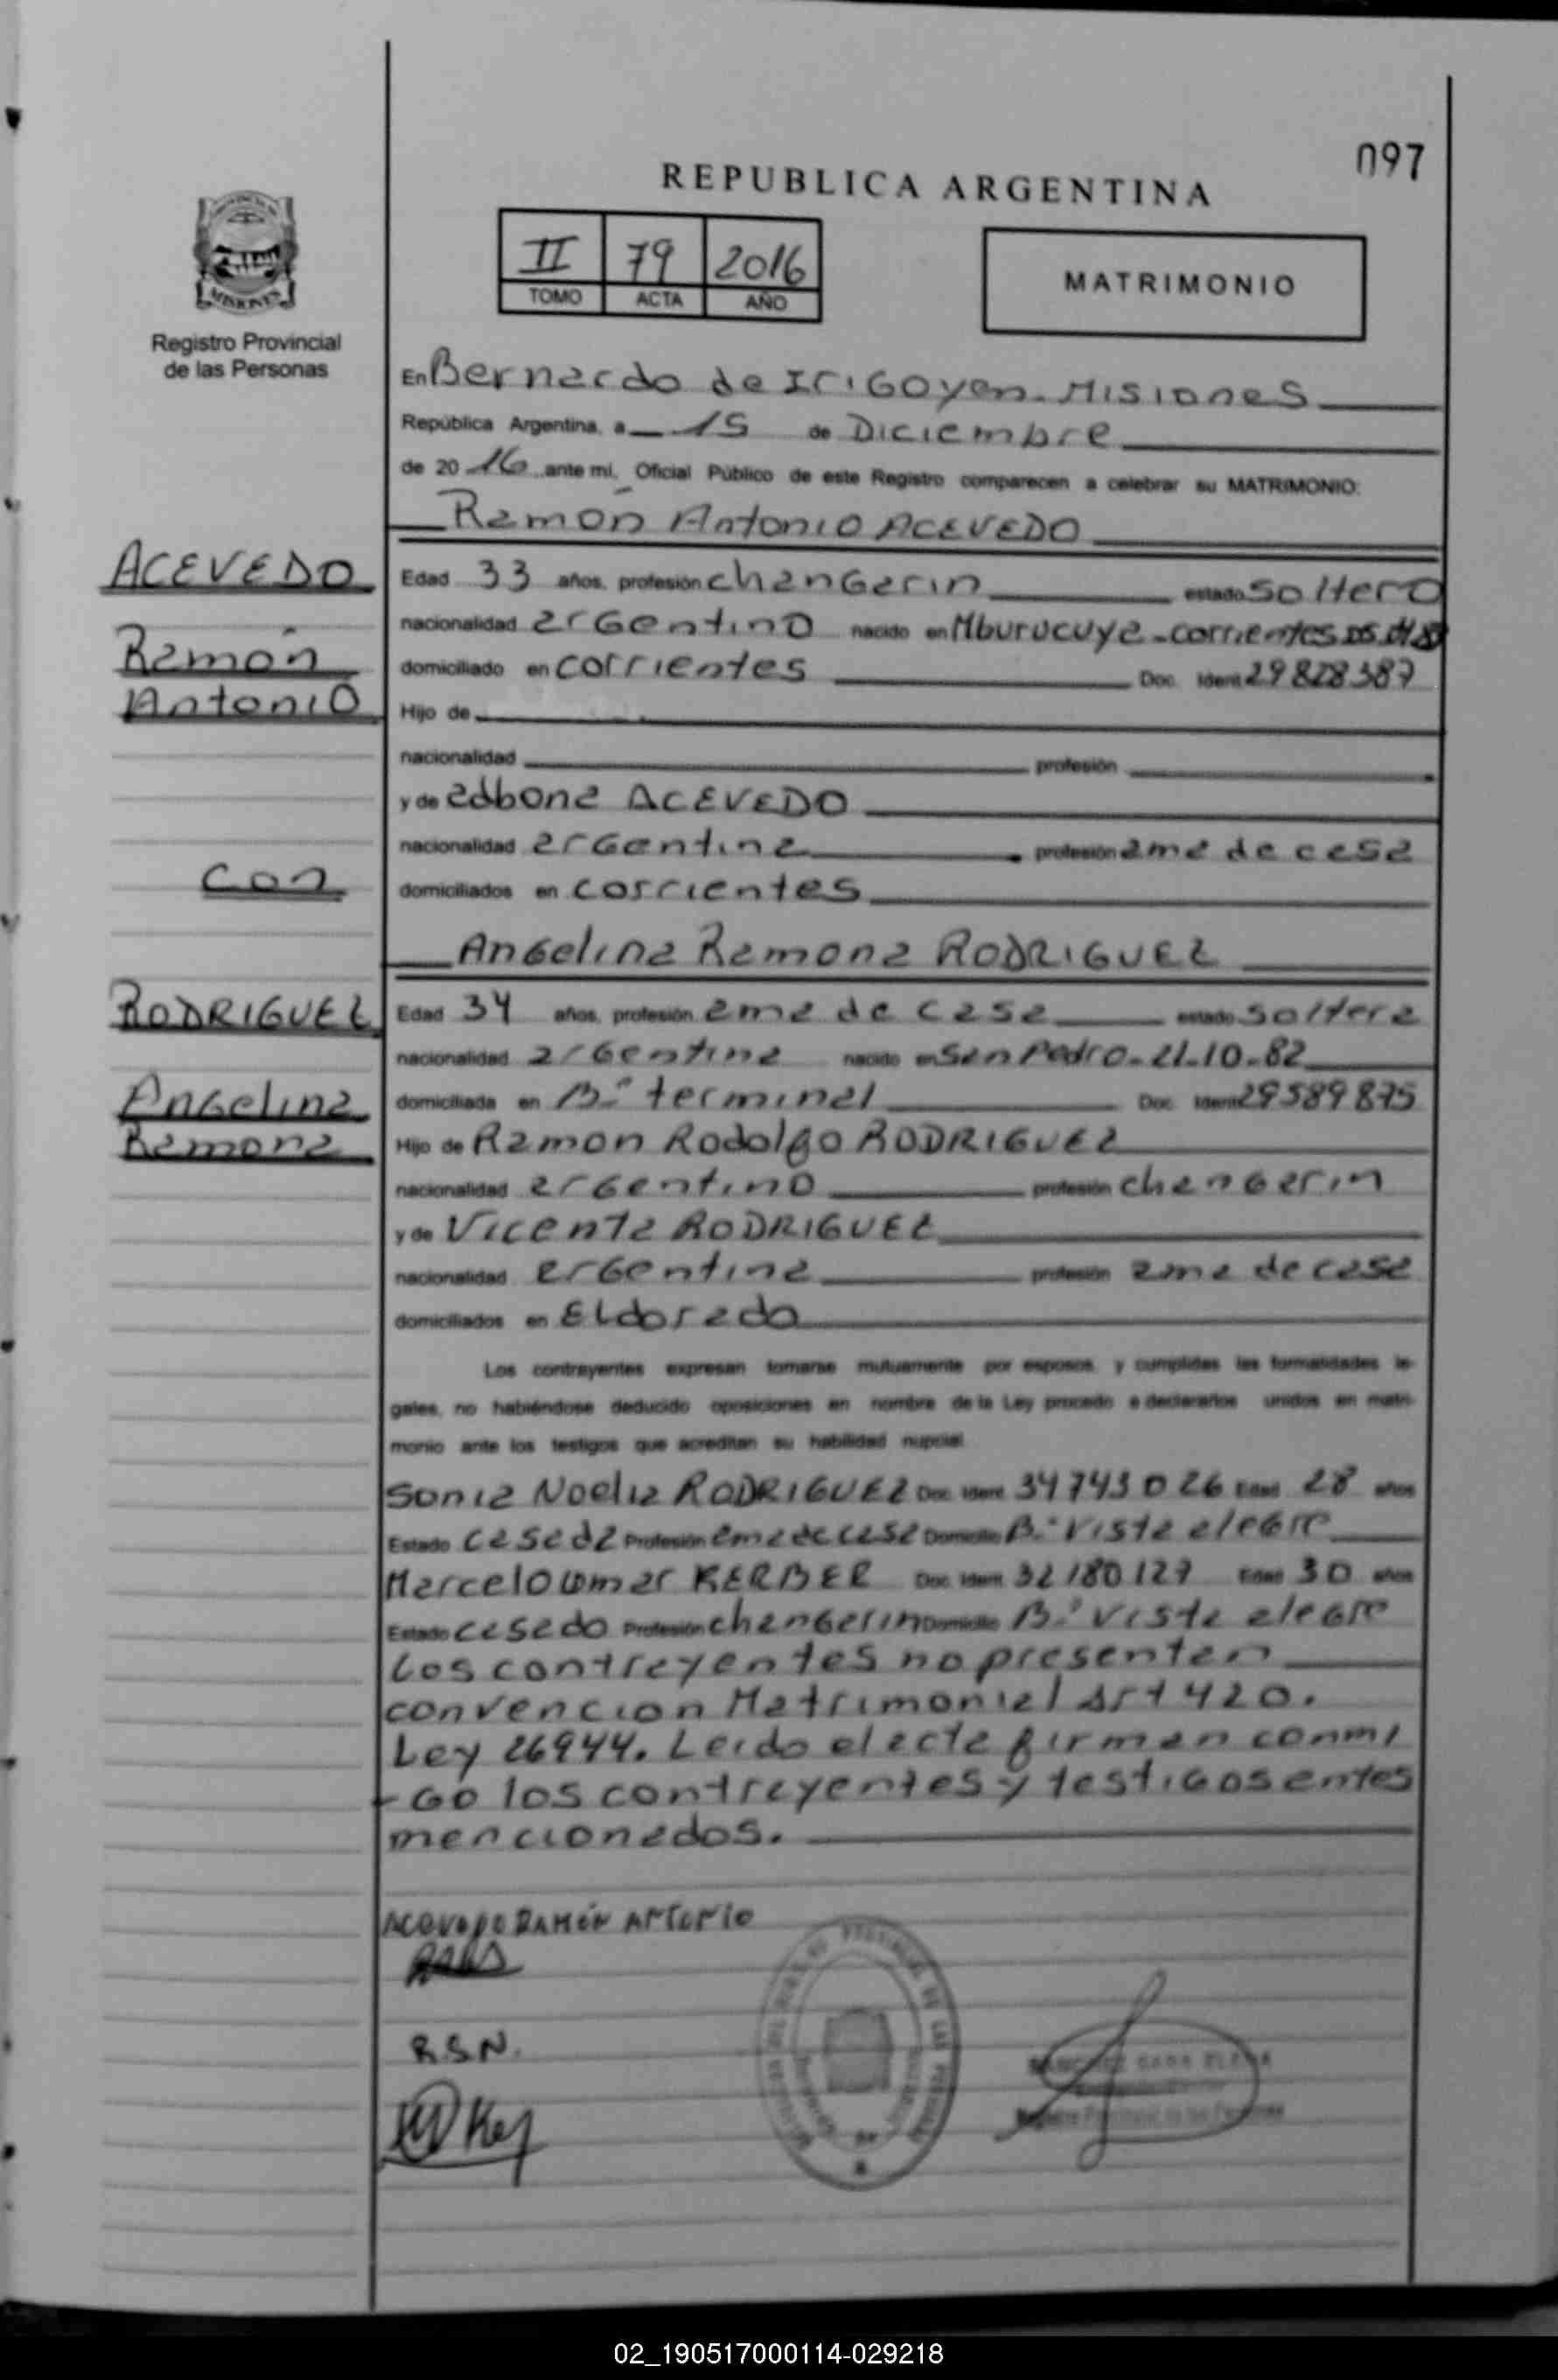 097
REPUBLICA ARGENTINA
II 79 2016
TOMO ACTA AÑO
MATRIMONIO
MISIONES
Registro Provincial
de las Personas
En Bernardo de IriGoyen - Misiones
República Argentina, a 15 de Diciembre
de 2016 ante mi, Oficial Público de este Registro comparecen a celebrar su MATRIMONIO:
Ramón Antonio ACEVEDO
ACEVEDO
Ramón
Antonio
Edad 33 años, profesión chanGarin estado soltero
nacionalidad arGentino nacido en Mburucuya - corrientes
domiciliado en corrientes Doc. Ident 29828387
Hijo de
nacionalidad profesión
y de edbona ACEVEDO
nacionalidad arGentina profesión ama de casa
con
domiciliados en corrientes
AnGelina Ramona RODRIGUEZ
RODRIGUEZ
AnGelina
Ramona
Edad 34 años, profesión ama de casa estado soltera
nacionalidad arGentina nacido en San Pedro - 21-10-82
domiciliada en B.º terminal Doc. Ident 29589875
Hijo de Ramon Rodolfo RODRIGUEZ
nacionalidad arGentino profesión chanGarin
y de Vicenta RODRIGUEZ
nacionalidad arGentina profesión ama de casa
domiciliados en ELdorado
Los contrayentes expresan tomarse mutuamente por esposos, y cumplidas las formalidades le-
gales, no habiéndose deducido oposiciones en nombre de la Ley procedo a declararlos unidos en matri-
monio ante los testigos que acreditan su habilidad nupcial.
Sonia Noelia RODRIGUEZ Doc. Ident. 34743026 Edad 28 años
Estado casada Profesión ama de casa Domicilio B.º Vista aleGre
Marcelo omar KERBER Doc. Ident. 32180127 Edad 30 años
Estado casado Profesión chanGarin Domicilio B.º Vista aleGre
Los contrayentes no presentan
convencion Matrimonial Art 420.
Ley 26944. Leido el acta firman conmi
-Go los contrayentes y testiGos antes
mencionados.
Acevedo Ramón Antonio
R.S.N.
Registro Provincial de las Personas
02_190517000114-029218